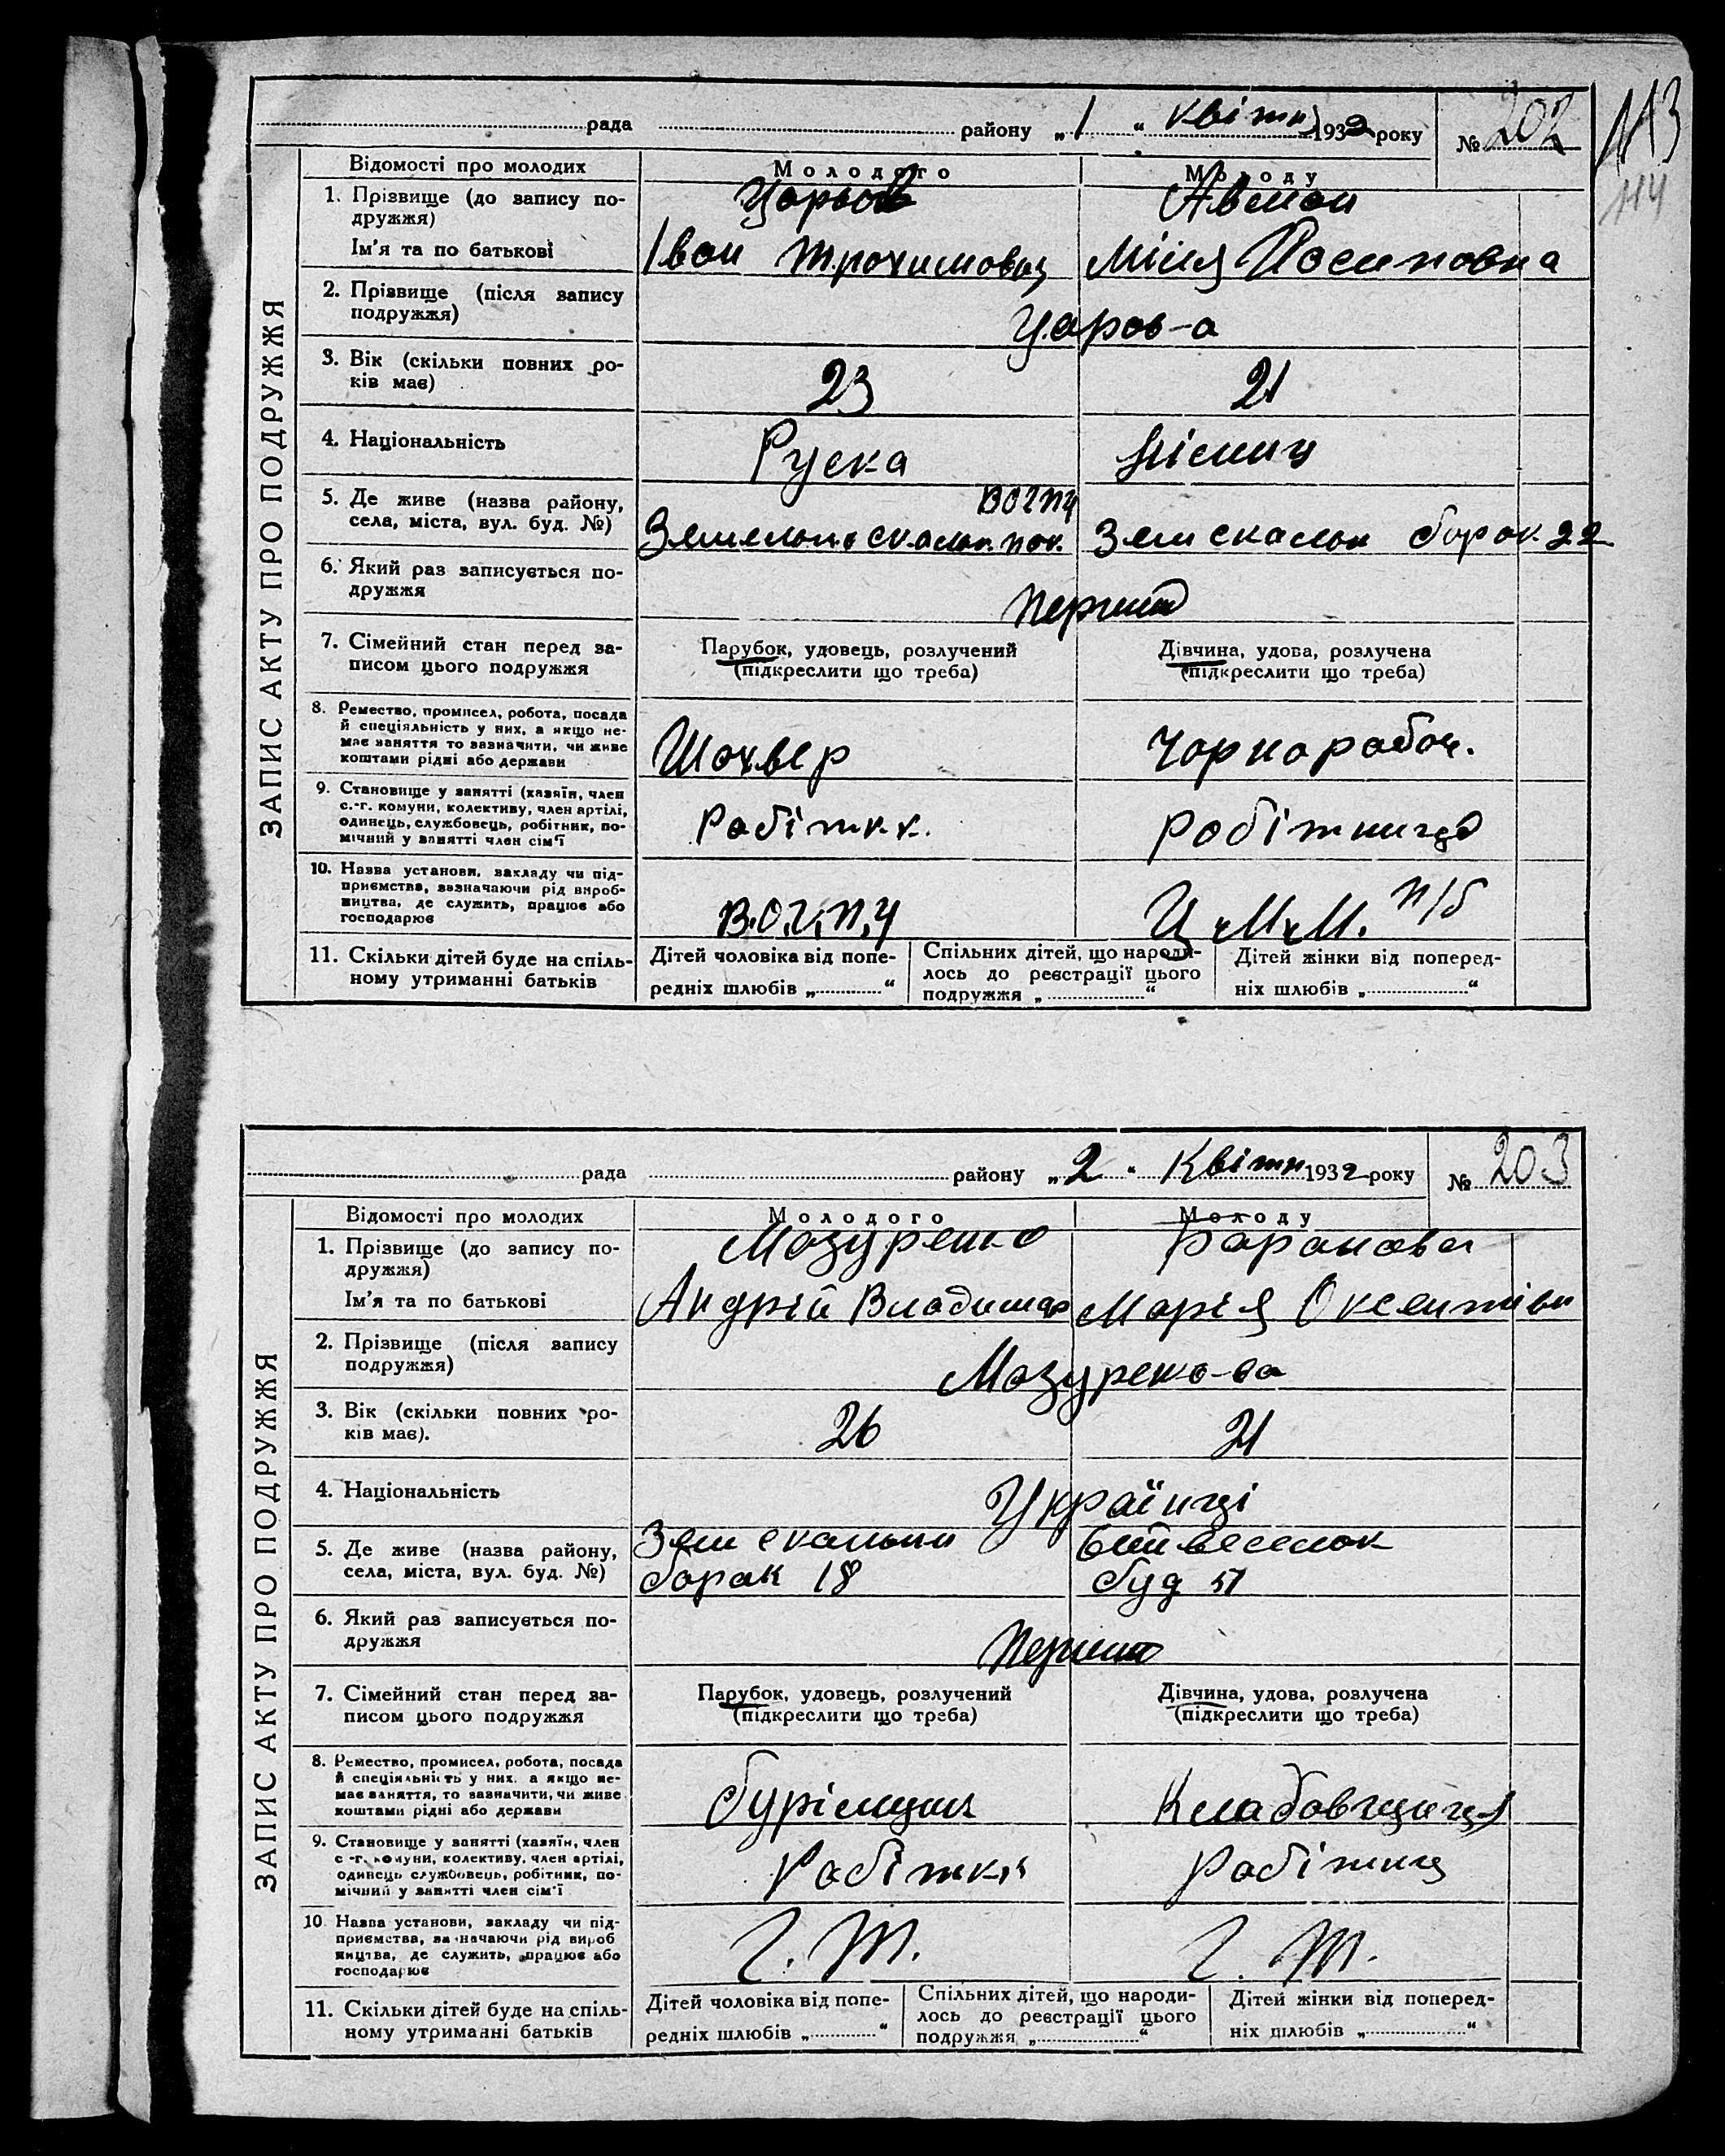 рада районy „1“ квітн 1932 року № 202
113
114
ЗАПИС АКТУ ПРО ПОДРУЖЖЯ
Відомості про молодих Молодого Молоду
1. Прізвище (до запису по-
дружжя)
Ім'я та по батькові Іван Трохимович Йосиповна
2. Прізвище (після запису
подружжя) Царов-а
3. Вік (скільки повних ро-
ків має) 23 21
4. Національність Руска
5. Де живе (назва району,
села, міста, вул. буд. №) барак 22
6. Який раз записується по-
дружжя перший
7. Сімейний стан перед за-
писом цього подружжя
Парубок, удовець, розлучений
(підкреслити що треба)
Дівчина, удова, розлучена
(підкреслити що треба)
8. Ремество, промисел, робота, посада
й спеціяльність у них, а якщо не-
має заняття то зазначити, чи живе
коштами рідні або держави
Шохвер Чорнорабоч.
9. Становище у занятті (хазяїн, член
с.-г. комуни, колективу, член артілі,
одинець, службовець, робітник, по-
мічний у занятті член сім'ї
Робітн.к. робітниця
10. Назва установи, закладу чи під-
приємства, зазначаючи рід вироб-
ництва, де служить, працює або
господарює
11. Скільки дітей буде на спіль-
ному утриманні батьків
Дітей чоловіка від попе-
редніх шлюбів „ “
Спільних дітей, що народи-
лось до реєстрації цього
подружжя „ “
Дітей жінки від поперед-
ніх шлюбів „ “
рада району „2“ Квітн 1932 року № 203
ЗАПИС АКТУ ПРО ПОДРУЖЖЯ
Відомості про молодих Молодого Молоду
1. Прізвище (до запису по-
дружжя) Мазуренко
Ім'я та по батькові Андрій Владимир Марія Оксентівн
2. Прізвище (після запису
подружжя) Мазуренко-ва
3. Вік (скільки повних ро-
ків має). 26 21
4. Національність Українці
5. Де живе (назва району,
села, міста, вул. буд. №)
барак 18 буд 51
6. Який раз записується по-
дружжя перший
7. Сімейний стан перед за-
писом цього подружжя
Парубок, удовець, розлучений
(підкреслити що треба)
Дівчина, удова, розлучена
(підкреслити що треба)
8. Ремество, промисел, робота, посада
й спеціяльність у них, а якщо не-
має заняття, то зазначити, чи живе
коштами рідні або держави
бурільщик Кладовщиця
9. Становище у занятті (хазяїн, член
с.-г. комуни, колективу, член артілі,
одинець службовець, робітник, по-
мічний у занятті член сім'ї
Робітник Робітниц
10. Назва установи, закладу чи під-
приємства, зазначаючи рід вироб
ництва, де служить, працює або
господарює
Г. Т. Г. Т.
11. Скільки дітей буде на спіль-
ному утриманні батьків
Дітей чоловіка від попе-
редніх шлюбів „ “
Спільних дітей, що народи-
лось до реєстрації цього
подружжя „ “
Дітей жінки від поперед-
ніх шлюбів „ “